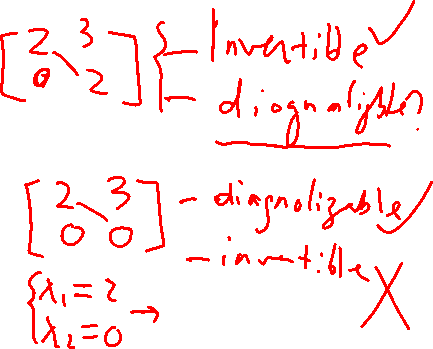 [2 3
0 2] { – Invertible ✓
– diagnalizble?
[2 3
0 0] – diagnolizable ✓
– invertible X
{ λ₁ = 2
λ₂ = 0 →